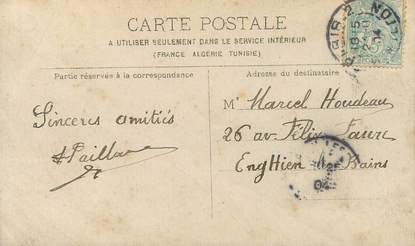 CARTE POSTALE
A UTILISER SEULEMENT DANS LE SERVICE INTÉRIEUR
(FRANCE ALGÉRIE TUNISIE)
Partie réservée à la correspondance
Adresse du destinataire
Sincères amitiés
Mr Marcel Houdeau
26 av. Félix Faure
Enghien les Bains
PARIS